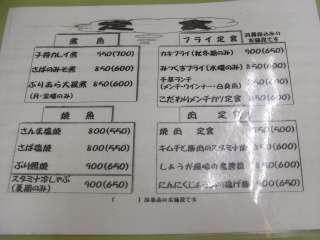 定食
煮魚
子持カレイ煮 950(700)
さばのみそ煮 850(600)
ぶりあら大根煮 850(600)
(月・金曜のみ)
フライ定食
カキフライ(秋冬期のみ) 900(650)
みつくぎフライ(水曜のみ) 850(600)
千草ランチ
(メンチ・ウインナー・白身魚) 850(600)
こだわりメンチカツ定食 850(600)
焼魚
さんま塩焼 800(550)
さば塩焼 800(550)
ぶり照焼 900(650)
スタミナ冷しゃぶ
(夏期のみ) 900(650)
肉定食
焼肉定食
キムチと豚肉のスタミナ 850(600)
しょうが 850(600)
にんにく 揚げ 900(650)